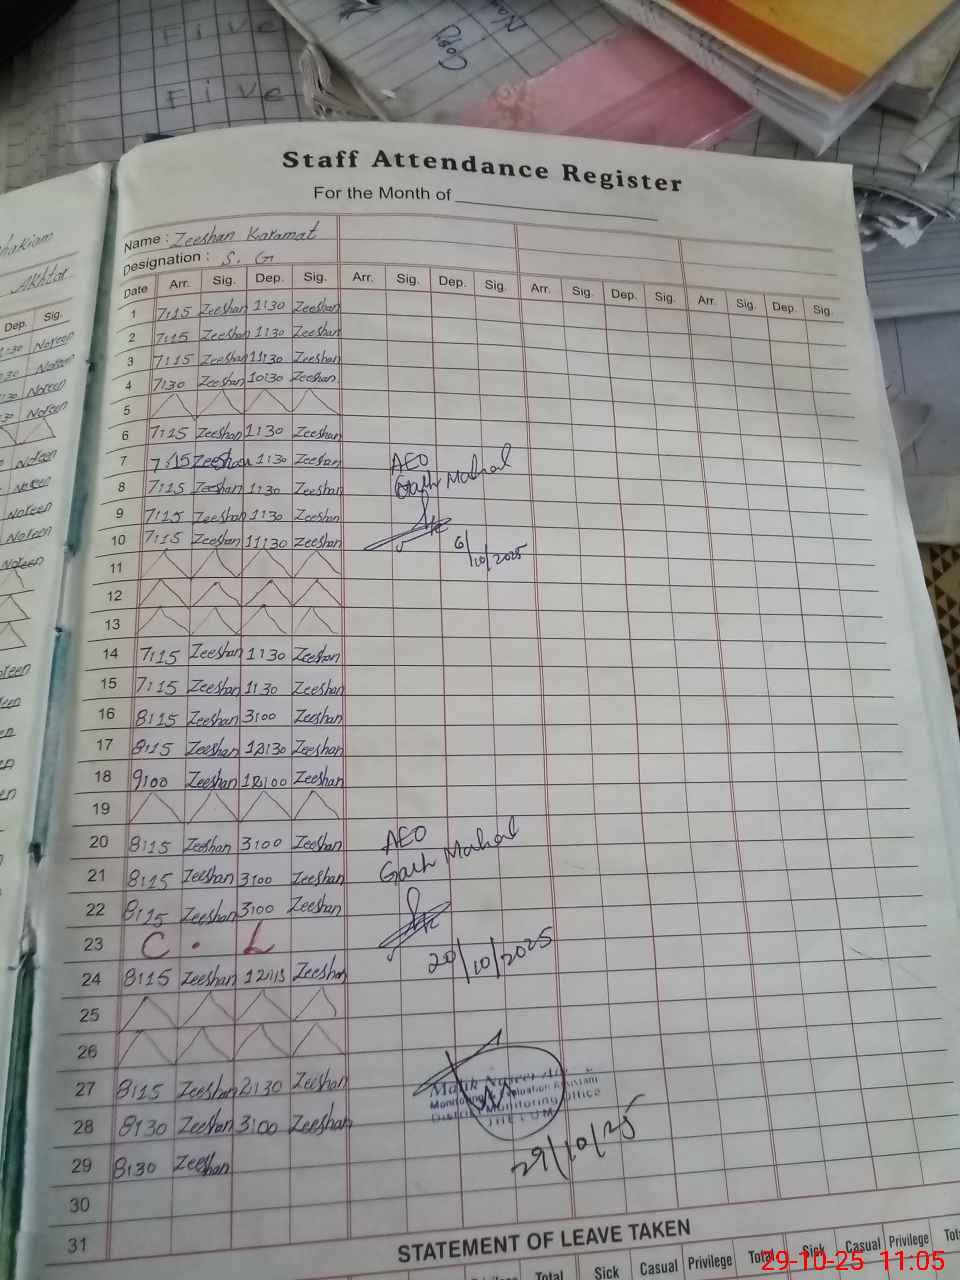 Five
Five
Copy
Staff Attendance Register
For the Month of
Name : Zeeshan Karamat
Designation : S. G
Date Arr. Sig. Dep. Sig. Arr. Sig. Dep. Sig. Arr. Sig. Dep. Sig. Arr. Sig. Dep. Sig.
1 7:15 Zeeshan 1:30 Zeeshan
2 7:15 Zeeshan 1:30 Zeeshan
3 7:15 Zeeshan 11:30 Zeeshan
4 7:30 Zeeshan 10:30 Zeeshan
5
6 7:15 Zeeshan 1:30 Zeeshan
7 7:15 Zeeshan 1:30 Zeeshan AEO
8 7:15 Zeeshan 1:30 Zeeshan Garh Mahal
9 7:15 Zeeshan 1:30 Zeeshan
10 7:15 Zeeshan 11:30 Zeeshan 6/10/2025
11
12
13
14 7:15 Zeeshan 1:30 Zeeshan
15 7:15 Zeeshan 1:30 Zeeshan
16 8:15 Zeeshan 3:00 Zeeshan
17 8:15 Zeeshan 12:30 Zeeshan
18 9:00 Zeeshan 12:00 Zeeshan
19
20 8:15 Zeeshan 3:00 Zeeshan AEO
21 8:15 Zeeshan 3:00 Zeeshan Garh Mahal
22 8:15 Zeeshan 3:00 Zeeshan
23 C . L
24 8:15 Zeeshan 12:15 Zeeshan 20/10/2025
25
26
27 8:15 Zeeshan 2:30 Zeeshan Malik
Monitoring & Evaluation Assistant
28 8:30 Zeeshan 3:00 Zeeshan District Monitoring Office
JHELUM
29 8:30 Zeeshan 29/10/25
30
31
STATEMENT OF LEAVE TAKEN
Total Sick Casual Privilege Total Sick Casual Privilege
29-10-25 11:05
Akhtar
Dep. Sig.
Noreen
Noreen
Noreen
Noreen
Noreen
Noreen
Noreen
Noreen
Noreen